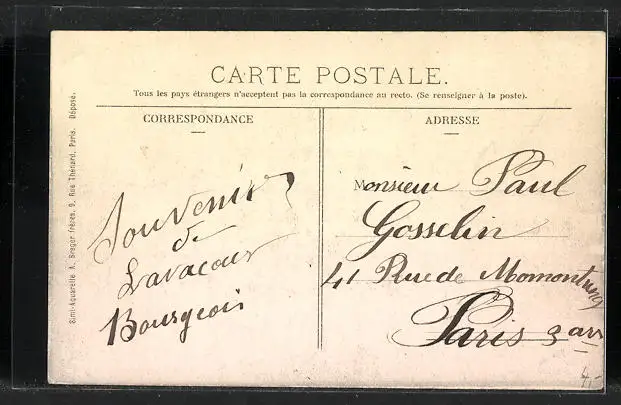 CARTE POSTALE.
Tous les pays étrangers n'acceptent pas la correspondance au recto. (Se renseigner à la poste).
CORRESPONDANCE
Souvenir
de
Lavacour
Bourgeois
ADRESSE
Monsieur Paul
Gosselin
41 Rue de
Paris 3 arr
Simi-Aquarelle A. Breger frères, 9, Rue Thénard, Paris. Déposé.